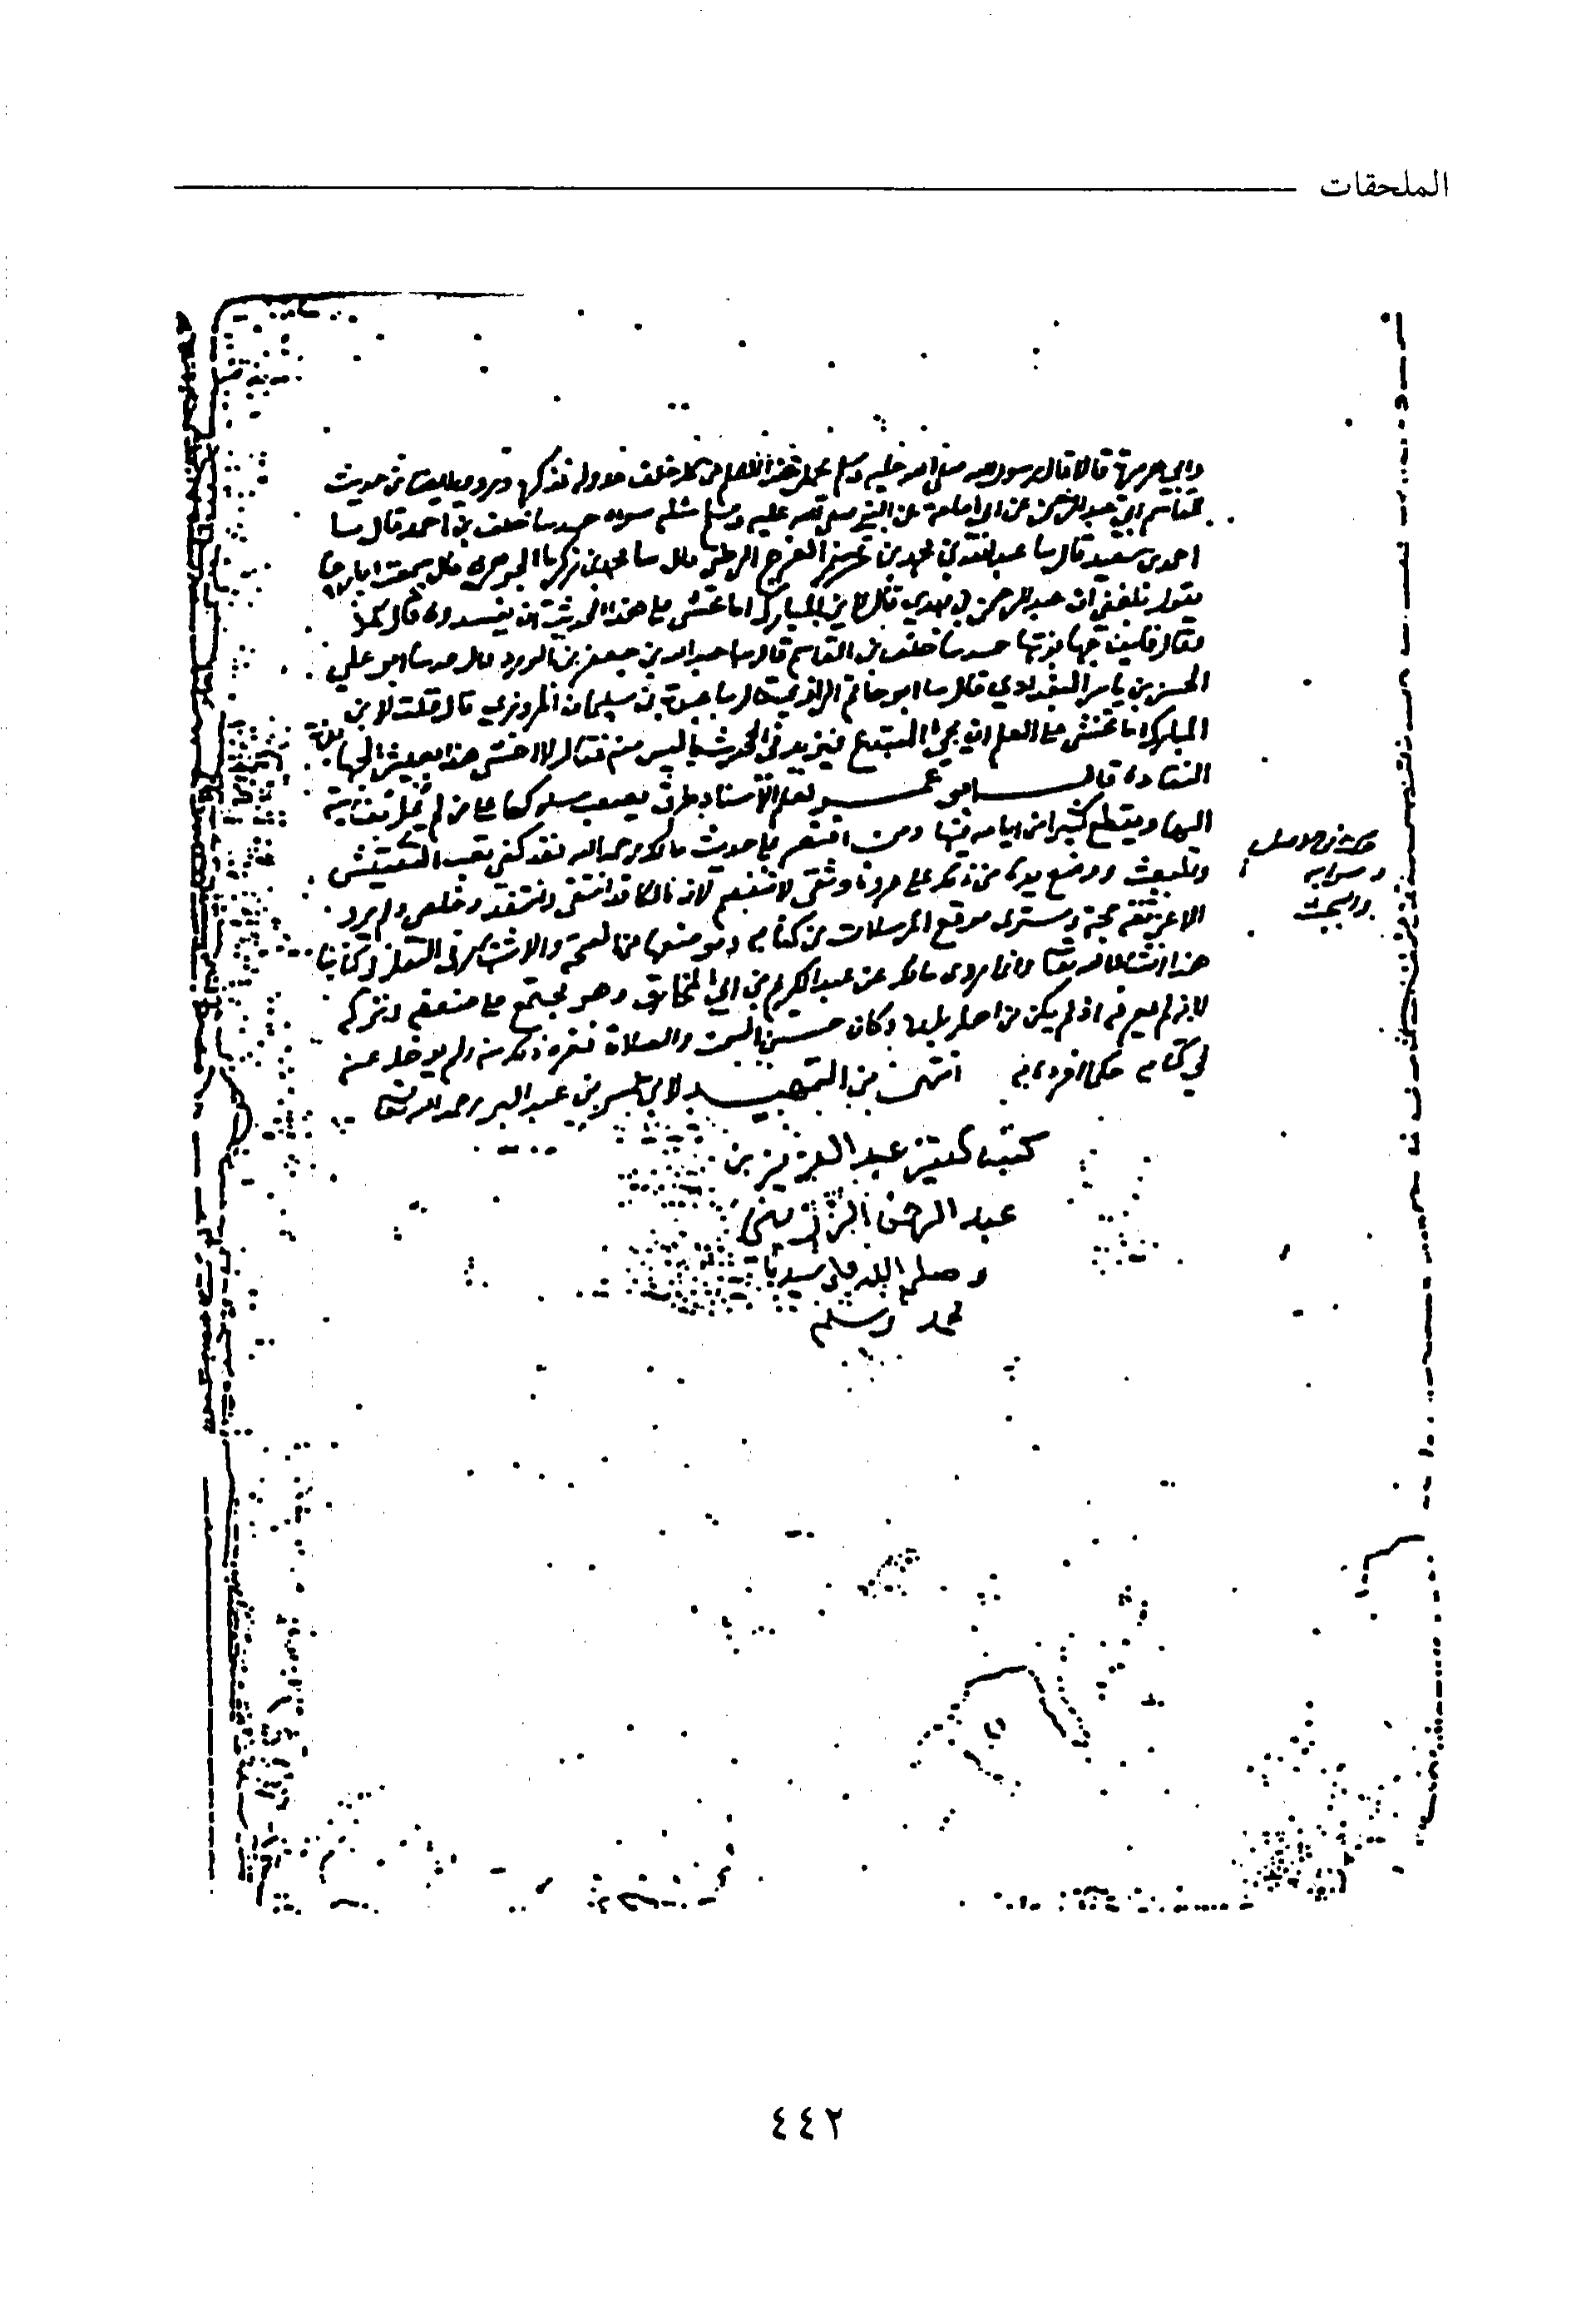 الملحقات
وابي هريرة قالا قال رسول الله صلى الله عليه وسلم يحمل هذا العلم من كل خلف عدوله فذكره وروي ايضا من حديث
القاسم ابي عبد الرحمن عن ابي امامة عن النبي صلى الله عليه وسلم مثله سواء حدثنا خلف بن احمد قال نا
احمد بن سعيد قال نا عبد الله بن محمد بن الفرج قال نا محمد بن زكريا الجوهري قال سمعت ابا رجا
يقول بلغني ان عبد الرحمن بن مهدي قال لابن المبارك اما تخشى على هذا الحديث ان يفسدوه قال كلا
فقال فاين جهابذتها حدثنا خلف بن القاسم قال نا عبد الله بن جعفر بن الورد قال حدثنا ابو علي
الحسن بن ياسر البغدادي قال نا ابو حاتم الرازي قال نا عبدة بن سليمان المروزي قال قلت لابن
المبارك اما تخشى على العلم ان يجي المبتدع فيزيد في الحديث ما ليس منه فقال لا اخشى هذا بعيش الجهابذة
النقاد قال ابو عمر لعلم الاسناد طرق يصعب سلوكها على من لم يصل بعنايته
اليها ويقطع كثيرا من ايامه فيها ومن اقتصر على حديث مالك رحمه الله فقد كفي تعب التفتيش
والبحث ووضع يده من ذلك على عروة وثقى لا تنفصم لان مالكا قد انتقى وانتقد وخلص ولم يرو
الا عن ثقة حجة وسترى موقع المرسلات من كتابه وموضعها من الصحة والاشتهار في النقل في كتابنا
هذا ان شاء الله تعالى وانما روى مالك عن عبد الكريم بن ابي المخارق وهو مجتمع على ضعفه وتركه
لانه لم يعرفه اذ لم يكن من اهل بلده وكان حسن السمت والصلاة فغره ذلك منه ولم يدخل عنه
في كتابه حكما افرده به انتهى من التمهيد لابي عمر بن عبد البر رحمه الله تعالى
كتبه الفقير عبد العزيز بن
عبد الرحمن
وصلى الله على سيدنا
محمد وسلم
كذا في الاصل
وصوابه
والبحث
٤٤٢